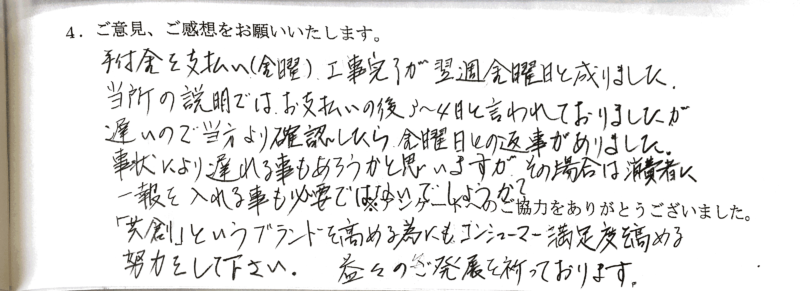 4．ご意見、ご感想をお願いいたします。
手付金を支払い(金曜) 工事完了が翌週金曜日と成りました。
当所の説明では、お支払いの後 3〜4日と言われておりましたが
遅いので当方より確認したら、金曜日との返事がありました。
事状により遅れる事もあろうかと思いますが、その場合は消費者に
一報を入れる事も必要ではないでしょうか?
※アンケートへのご協力をありがとうございました。
「共創」というブランドを高める為にもコンシューマー満足度を高める
努力をして下さい。 益々のご発展を祈っております。